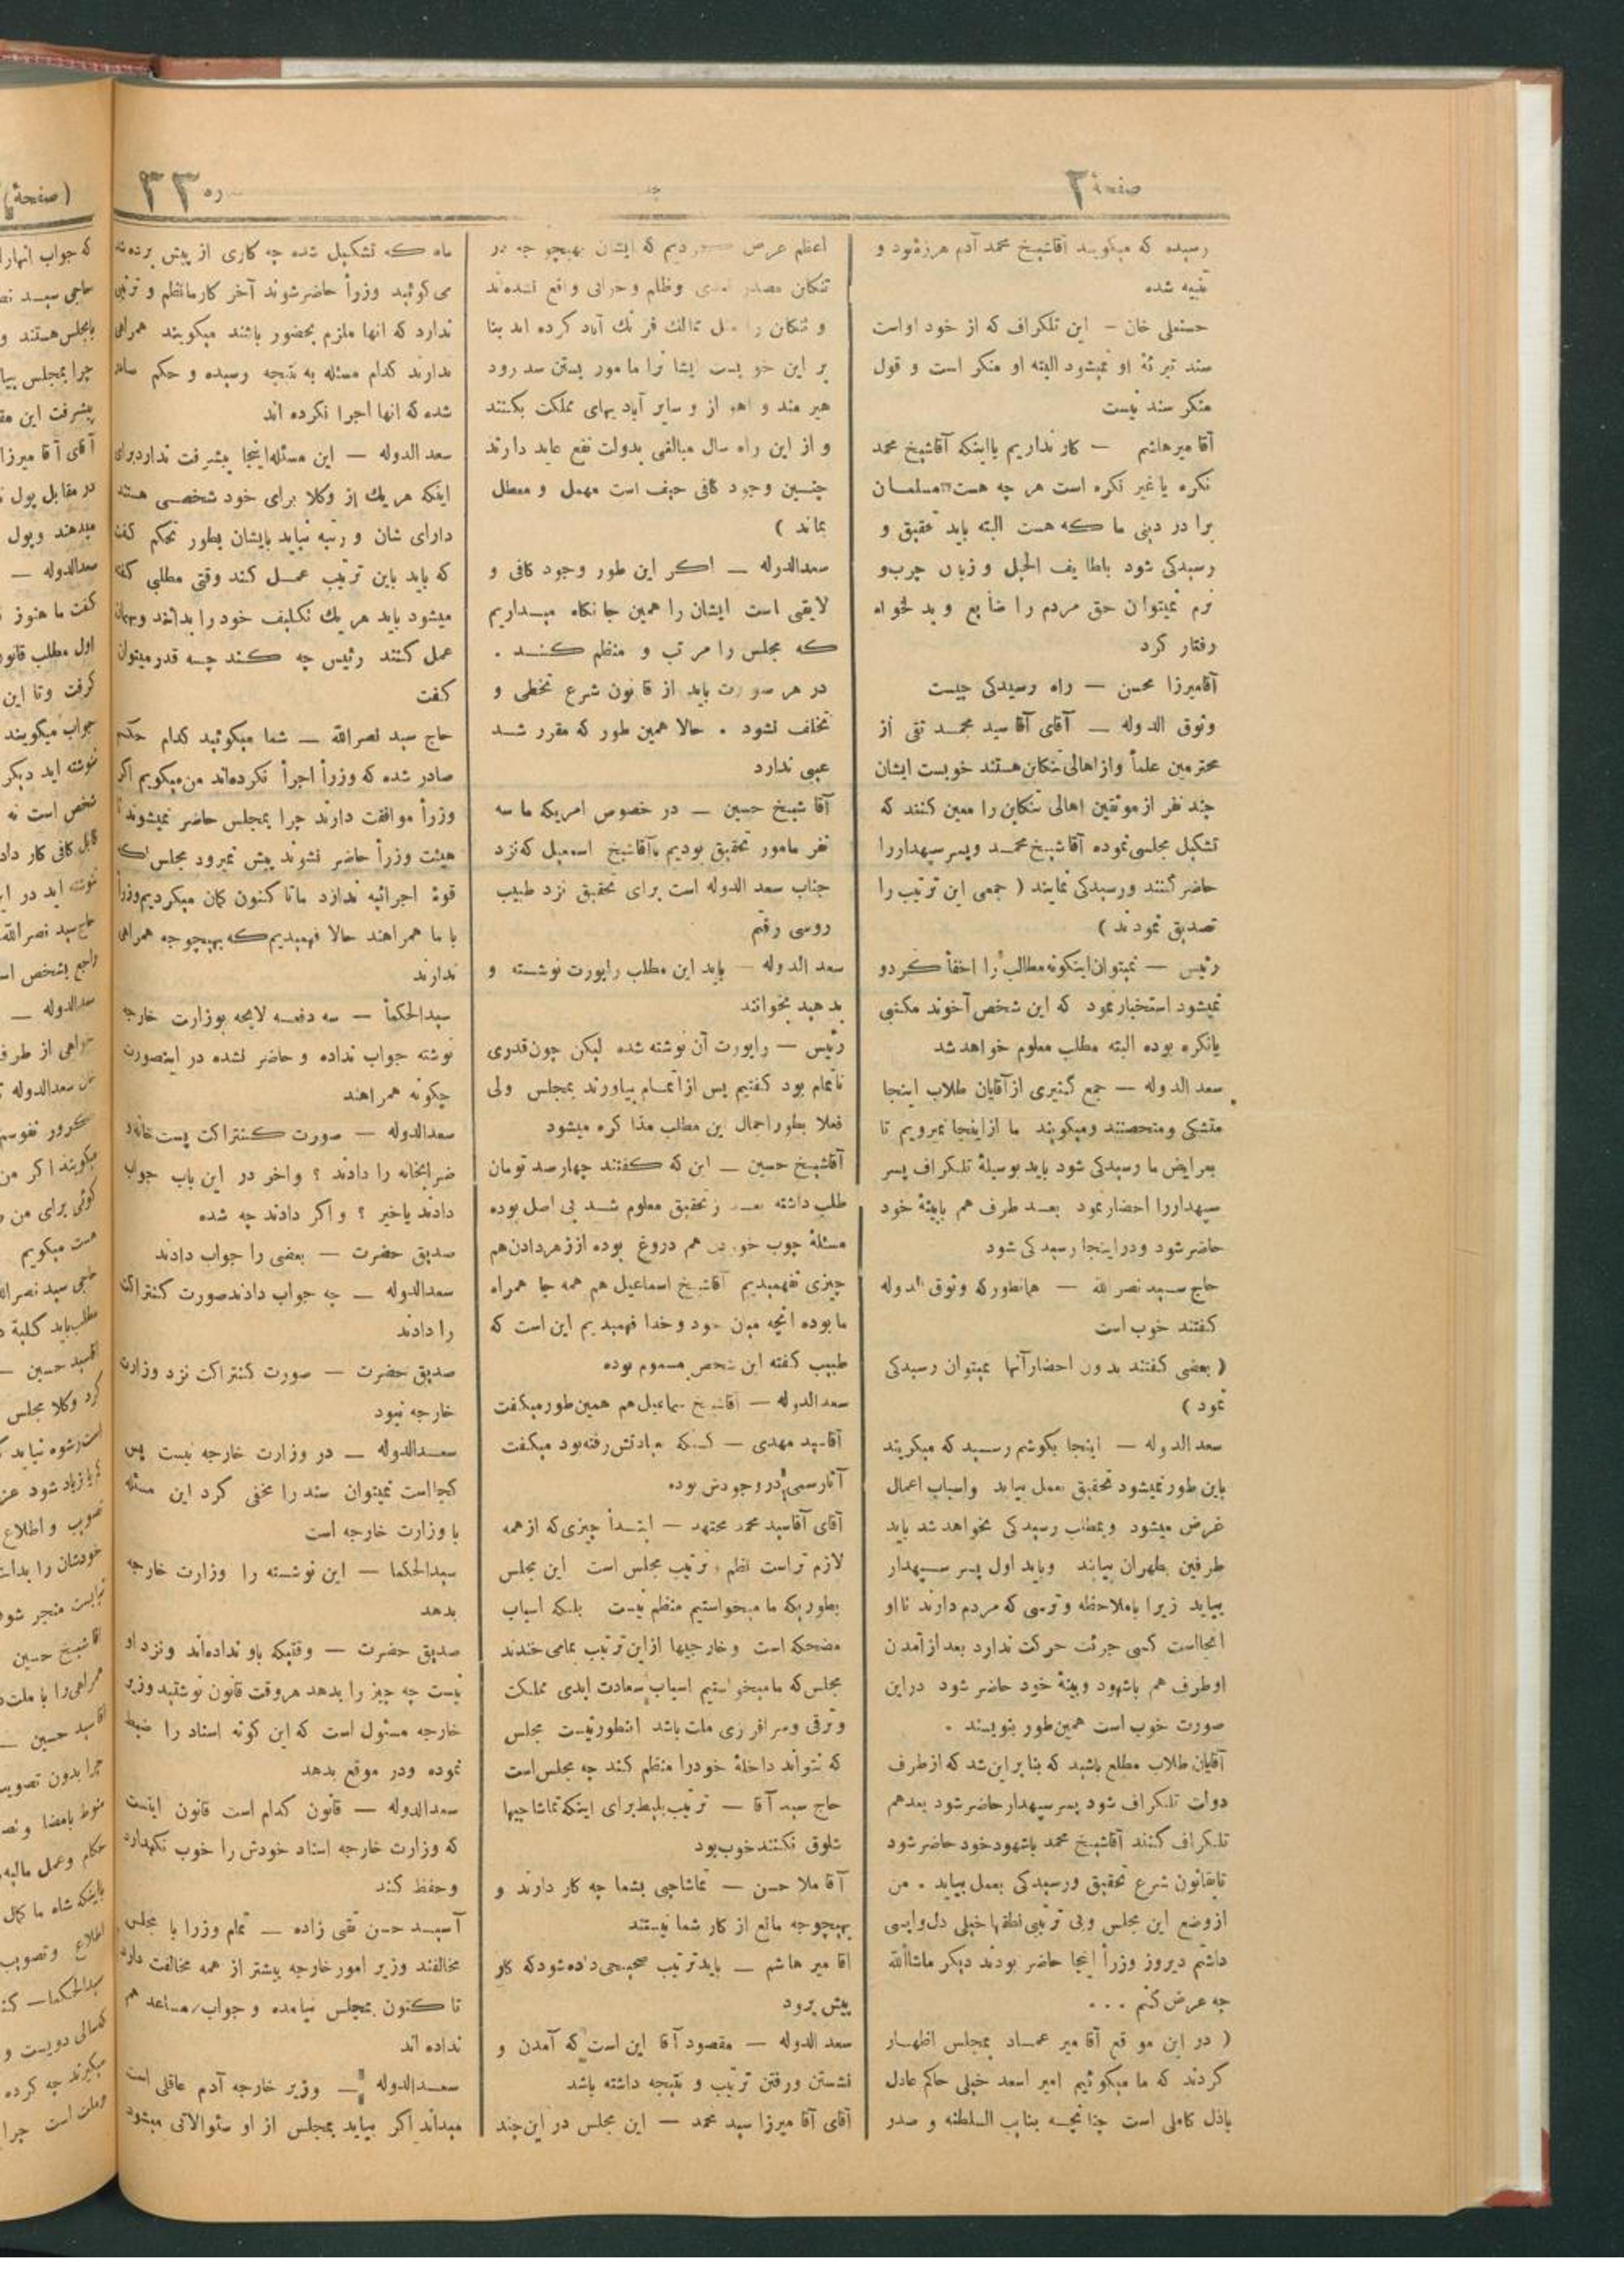 صفحهٔ ۲
ره ۳۳
رسیده که میکویند آقاشیخ محمد آدم هرزهٔبود و
تنبیه شده
حسنعلی خان – این تلکراف که از خود اواست
سند تبرئهٔ او نمیشود البته او منکر است و قول
منکر سند نیست
آقا میرهاشم – کار نداریم بااینکه آقاشیخ محمد
نکره یا غیر نکره است هر چه هست مسلمان
برا در دینی ما که هست البته باید تحقیق و
رسیدکی شود باطایف الحیل و زبان چرب و
نرم نمیتوان حق مردم را ضایع و بد لخواه
رفتار کرد
آقامیرزا محسن – راه رسیدکی چیست
وثوق الدوله – آقای آقا سید محمد تقی از
محترمین علماً وازاهالی تنکابن هستند خوبست ایشان
چند نفر از موثقین اهالی تنکابن را معین کنند که
تشکیل مجلسی نموده آقاشیخ محمد وپسر سپهداررا
حاضر کنند ورسیدکی نمایند ( جمعی این ترتیب را
تصدیق نمودند )
رئیس – نمیتوان اینکونه مطالب را اخفأ کردو
نمیشود استخبار نمود که این شخص آخوند مکتبی
یانکره بوده البته مطلب معلوم خواهد شد
سعد الدوله – جمع کثیری از آقایان طلاب اینجا
متشکی ومتحصنند ومیکویند ما از اینجا نمیرویم تا
بعرایض ما رسیدکی شود باید بوسیلهٔ تلکراف پسر
سپهداررا احضار نمود بعد طرف هم بابینهٔ خود
حاضر شود ودراینجا رسیدکی شود
حاج سید نصر الله – همانطور که وثوق الدوله
کفتند خوب است
( بعضی کفتند بدون احضار آنها نمیتوان رسیدکی
نمود )
سعد الدوله – اینجا بکوشم رسید که میکویند
باین طور نمیشود تحقیق بعمل بیاید واسباب اعمال
غرض میشود وبمطلب رسیدکی نخواهد شد باید
طرفین بطهران بیایند وباید اول پسر سپهدار
بیاید زیرا باملاحظه وترسی که مردم دارند تا او
انجااست کسی جرئت حرکت ندارد بعد از آمدن
اوطرف هم باشهود وبینهٔ خود حاضر شود دراین
صورت خوب است همین طور بنویسند .
آقایان طلاب مطلع باشید که بنا براین شد که از طرف
دولت تلکراف شود پسر سپهدار حاضر شود بعدهم
تلکراف کنند آقاشیخ محمد باشهود خود حاضر شود
تابقانون شرع تحقیق ورسیدکی بعمل بیاید . من
از وضع این مجلس وبی ترتیبی نطقها خیلی دل واپسی
داشتم دیروز وزرأ اینجا حاضر بودند دیکر ماشأالله
چه عرض کنم . . .
( در این موقع آقا میر عماد بمجلس اظهار
کردند که ما میکوئیم امیر اسعد خیلی حاکم عادل
باذل کاملی است چنانچه بنایب السلطنه و صدر
اعظم عرض کردیم که ایشان بهیچوجه در
تنکابن مصدر تعدی وظلم وخرابی واقع نشده اند
و تنکابن را مثل ممالک فرنک آباد کرده اند بنا
بر این خوبست ایشا نرا مامور بستن سد رود
هیرمند و اهواز و سایر آبادیهای مملکت بکنند
و از این راه سال مبالغی بدولت نفع عاید دارند
چنین وجود کافی حیف است مهمل و معطل
بماند )
سعدالدوله – اکر این طور وجود کافی و
لایقی است ایشان را همین جا نکاه میداریم
که مجلس را مرتب و منظم کند .
در هر صورت باید از قانون شرع تخطی و
تخلف نشود . حالا همین طور که مقرر شد
عیبی ندارد
آقا شیخ حسین – در خصوص امریکه ما سه
نفر مامور تحقیق بودیم باآقاشیخ اسمعیل که نزد
جناب سعد الدوله است برای تحقیق نزد طبیب
روسی رفتم
سعد الدوله – باید این مطلب راپورت نوشته و
بدهید بخوانند
رئیس – راپورت آن نوشته شده لیکن چون قدری
ناتمام بود کفتیم پس از اتمام بیاورند بمجلس ولی
فعلا بطور اجمال این مطلب مذاکره میشود
آقاشیخ حسین – این که کفتند چهار صد تومان
طلب داشته بعد از تحقیق معلوم شد بی اصل بوده
مسئلهٔ چوب خوردن هم دروغ بوده اززهر دادن هم
چیزی نفهمیدیم آقاشیخ اسماعیل هم همه جا همراه
ما بوده آنچه میان خود وخدا فهمیدیم این است که
طبیب کفته این شخص مسموم بوده
سعدالدوله – آقاشیخ سماعیل هم همین طور میکفت
آقاسید مهدی – کسیکه عیادتش رفته بود میکفت
آثارسمی در وجودش بوده
آقای آقاسید محمد مجتهد – ابتدأ چیزی که از همه
لازم تراست نظم و ترتیب مجلس است این مجلس
بطوریکه ما میخواستیم منظم نیست بلکه اسباب
مضحکه است وخارجیها ازاین ترتیب بمامی خندند
مجلس که مامیخواستیم اسباب سعادت ابدی مملکت
وترقی وسرافرازی ملت باشد اینطور نیست مجلس
که نتواند داخلهٔ خودرا منظم کند چه مجلس است
حاج سید آقا – ترتیب بلیط برای اینکه تماشاچیها
شلوق نکنند خوب بود
آقا ملا حسن – تماشاچی بشما چه کار دارند و
بهیچوجه مانع از کار شما نیستند
اقا میر هاشم – باید ترتیب صحیحی داده شود که کار
پیش برود
سعد الدوله – مقصود آقا این است که آمدن و
نشستن ورفتن ترتیب و نتیجه داشته باشد
آقای آقا میرزا سید محمد – این مجلس در این چند
ماه که تشکیل شده چه کاری از پیش برده
می کوئید وزرأ حاضر شوند آخر کار مانظم و ترتیبی
ندارد که انها ملزم بحضور باشند میکویند همراهی
ندارند کدام مسئله به نتیجه رسیده و حکم صادر
شده که انها اجرا نکرده اند
سعد الدوله – این مسئله اینجا پیشرفت ندارد برای
اینکه هر یک از وکلا برای خود شخصی هستند
دارای شان و رتبه نباید بایشان بطور تحکم کفت
که باید باین ترتیب عمل کند وقتی مطلبی کفته
میشود باید هر یک تکلیف خود را بدانند وبهمان
عمل کنند رئیس چه کند چه قدر میتوان
کفت
حاج سید نصرالله – شما میکوئید کدام حکم
صادر شده که وزرأ اجرأ نکرده اند من میکویم اکر
وزرأ موافقت دارند چرا بمجلس حاضر نمیشوند
هیئت وزرأ حاضر نشوند پیش نمیرود مجلس که
قوهٔ اجرائیه ندارد ماتا کنون کمان میکردیم وزرأ
با ما همراهند حالا فهمیدیم که بهیچوجه همراهی
ندارند
سیدالحکمأ – سه دفعه لایحه بوزارت خارجه
نوشته جواب نداده و حاضر نشده در اینصورت
چکونه همراهند
سعدالدوله – صورت کنتراکت پست خانه و
ضرابخانه را دادند ؟ واخر در این باب جواب
دادند یاخیر ؟ و اکر دادند چه شده
صدیق حضرت – بعضی را جواب دادند
سعدالدوله – چه جواب دادند صورت کنتراکت
را دادند
صدیق حضرت – صورت کنتراکت نزد وزارت
خارجه نبود
سعدالدوله – در وزارت خارجه نیست پس
کجااست نمیتوان سند را مخفی کرد این مسئله
با وزارت خارجه است
سیدالحکما – این نوشته را وزارت خارجه
بدهد
صدیق حضرت – وقتیکه باو نداده اند ونزد او
نیست چه چیز را بدهد هروقت قانون نوشتید وزیر
خارجه مسئول است که این کونه اسناد را ضبط
نموده ودر موقع بدهد
سعدالدوله – قانون کدام است قانون اینست
که وزارت خارجه اسناد خودش را خوب نکهدارد
وحفظ کند
آ سید حسن تقی زاده – تمام وزرا با مجلس
مخالفند وزیر امور خارجه بیشتر از همه مخالفت دارد
تا کنون بمجلس نیامده و جواب مساعد هم
نداده اند
سعدالدوله – وزیر خارجه آدم عاقلی است
میداند اکر بیاید بمجلس از او سئوالاتی میشود
(صفحهٔ)
که جواب انهارا
حاجی سید
بامجلس هستند و
پیشرفت این
آقای آقا میرزا
در مقابل پول
میدهند وپول
سعدالدوله –
کفت ما هنوز
اول مطلب
کرفت وتا این
جواب میکویند
نوشته اید دیکر
شخص است نه
حاج سید نصرالله
سعدالدوله –
میکویند اکر من
کوئی برای من
هست میکویم
آقاسید حسین –
کرد وکلا مجلس
آقا شیخ حسین
آقا سید حسین –
چرا بدون تصویب
منوط بامضا
حکام وعمل مالیه
بااینکه شاه ما
اطلاع وتصویب
سیدالحکما –
کسالی دویست و
میکیرند چه کرده